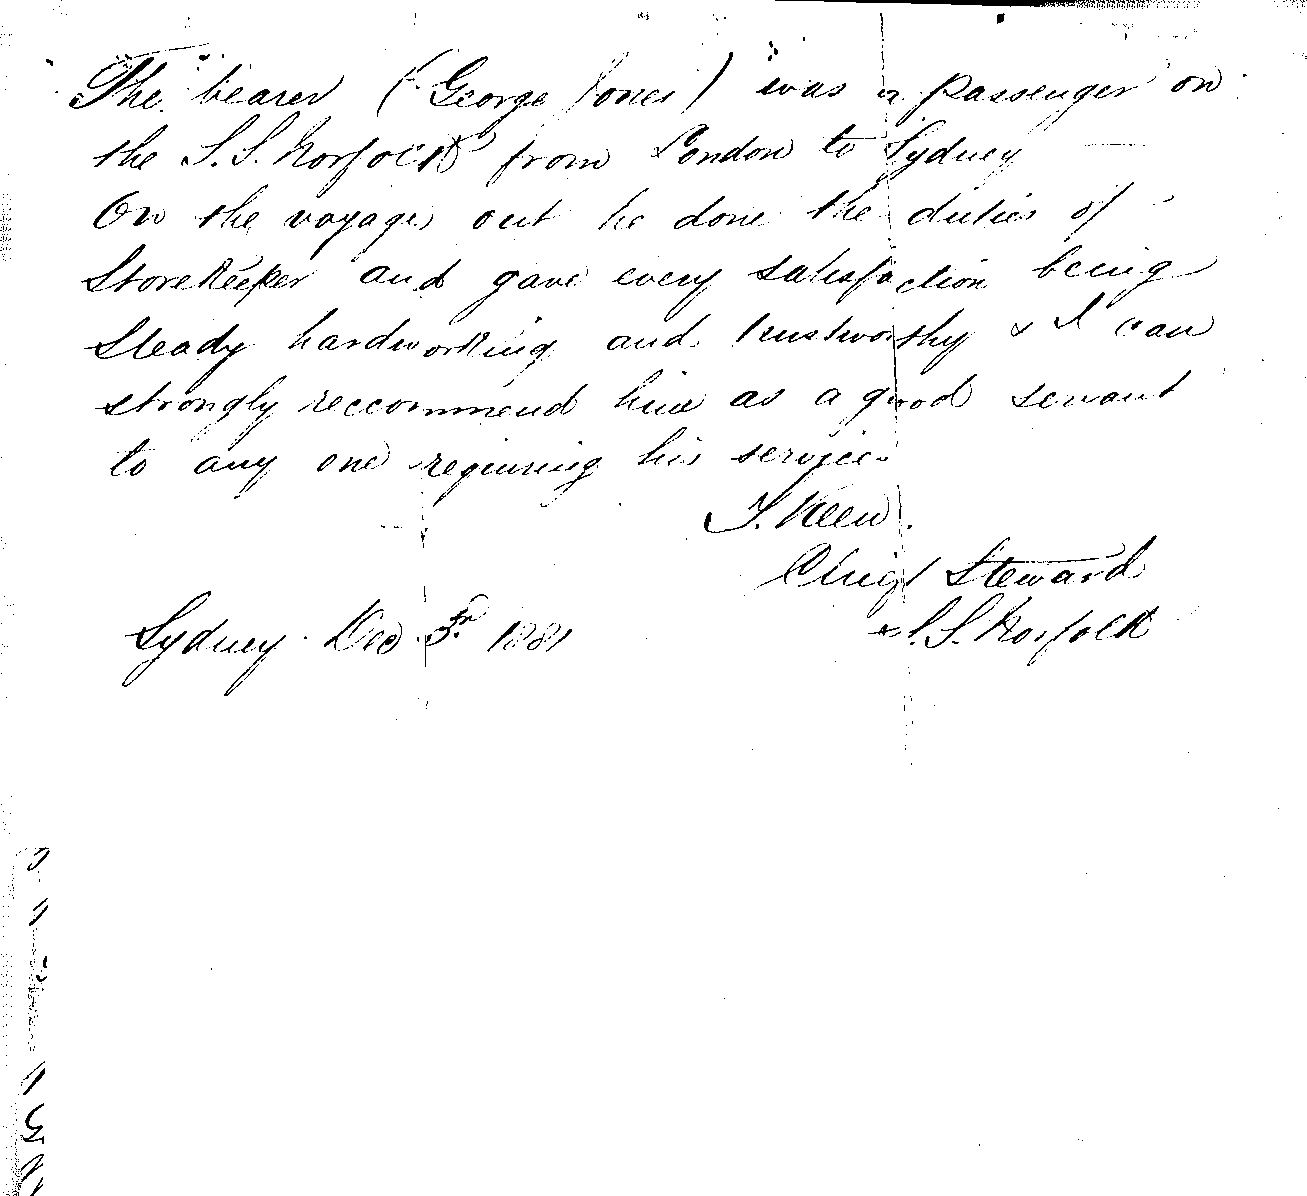 The bearer (George Jones) was a passenger on
the S.S. Norfolk from London to Sydney
On the voyage out he done the duties of
Storekeeper and gave every satisfaction being
Steady hardworking and trustworthy & I can
strongly reccommend him as a good servant
to any one requiring his services
T. Keen.
Chief Steward
S.S. Norfolk
Sydney Dec 5th 1881